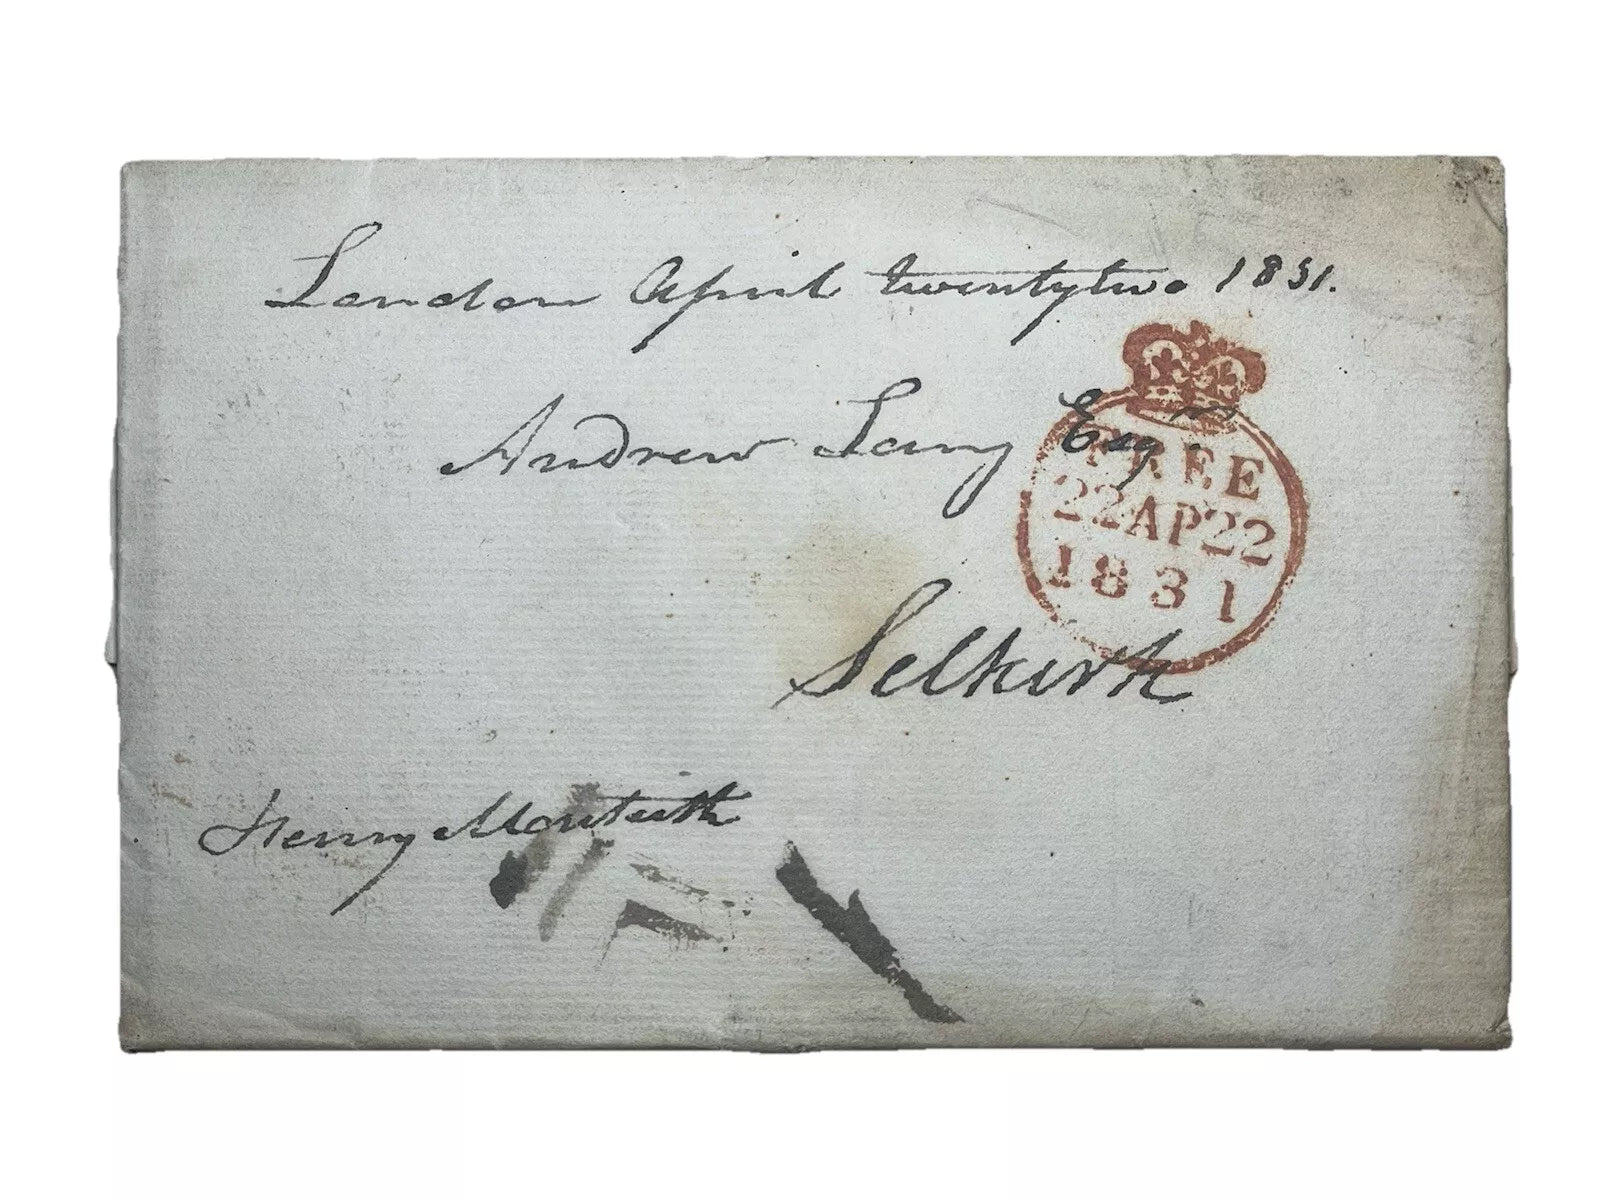 London April twentytwo 1831.
Andrew Lang Esqr
FREE
22AP22
1831
Selkirk
Henry Monteith